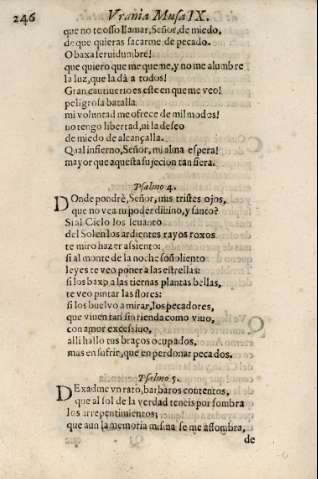 246 Vrania Musa IX.
que no te osso llamar, Señor, de miedo,
de que quieras sacarme de pecado.
O baxa seruidumbre!
que quiero que me queme, y no me alumbre
la luz, que la dà a todos!
Gran cautiuerio es este en que me veo!
peligrosa batalla
mi voluntad me ofrece de mil modos!
no tengo libertad, ni la deseo
de miedo de alcançalla.
Qual infierno, Señor, mi alma espera!
mayor que aquesta sujecion tan fiera.
Psalmo 4.
DOnde pondrè, Señor, mis tristes ojos,
que no vea tu poder diuino, y santo?
Si al Cielo los leuanto
del Sol en los ardientes rayos roxos
te miro hazer assiento:
si al monte de la noche soñoliento
leyes te veo poner a las estrellas:
si los baxo a las tiernas plantas bellas,
te veo pintar las flores:
si los buelvo a mirar, los pecadores,
que viuen tan sin rienda como viuo,
con amor excessiuo,
alli hallo tus braços ocupados,
mas en sufrir, que en perdonar pecados.
Psalmo 5.
DExadme vn rato, barbaros contentos,
que al sol de la verdad teneis por sombra
los arrepentimientos;
que aun la memoria misma se me assombra,
de